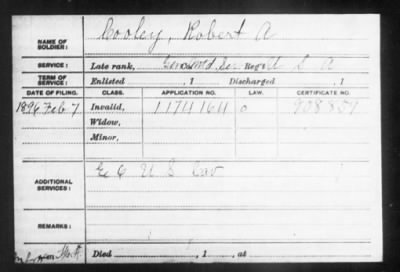 NAME OF SOLDIER: Cooley, Robert A
SERVICE: Late rank, Reg't U S A
TERM OF SERVICE: Enlisted , 1 Discharged , 1
DATE OF FILING. CLASS. APPLICATION NO. LAW. CERTIFICATE NO.
1896 Feb 7 Invalid, 1174164 0
Widow,
Minor,
ADDITIONAL SERVICES: U S Cav
REMARKS:
Died , 1 , at